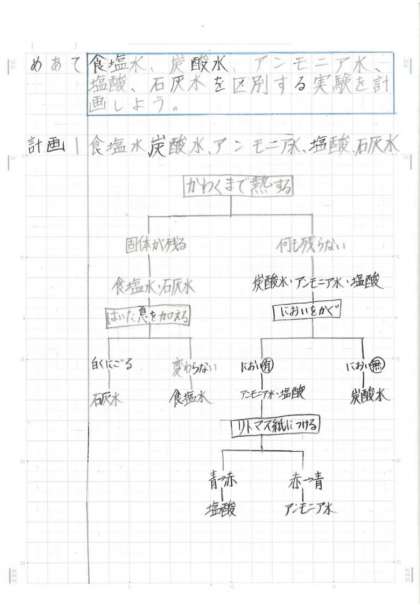 めあて 食塩水、炭酸水、アンモニア水、
塩酸、石灰水を区別する実験を計
画しよう。
計画1 食塩水、炭酸水、アンモニア水、塩酸、石灰水
かわくまで熱する
固体が残る 何も残らない
食塩水・石灰水 炭酸水・アンモニア水・塩酸
はいた息を加える においをかぐ
白くにごる 変わらない におい有 におい無
石灰水 食塩水 アンモニア水・塩酸 炭酸水
リトマス紙につける
青→赤 赤→青
塩酸 アンモニア水